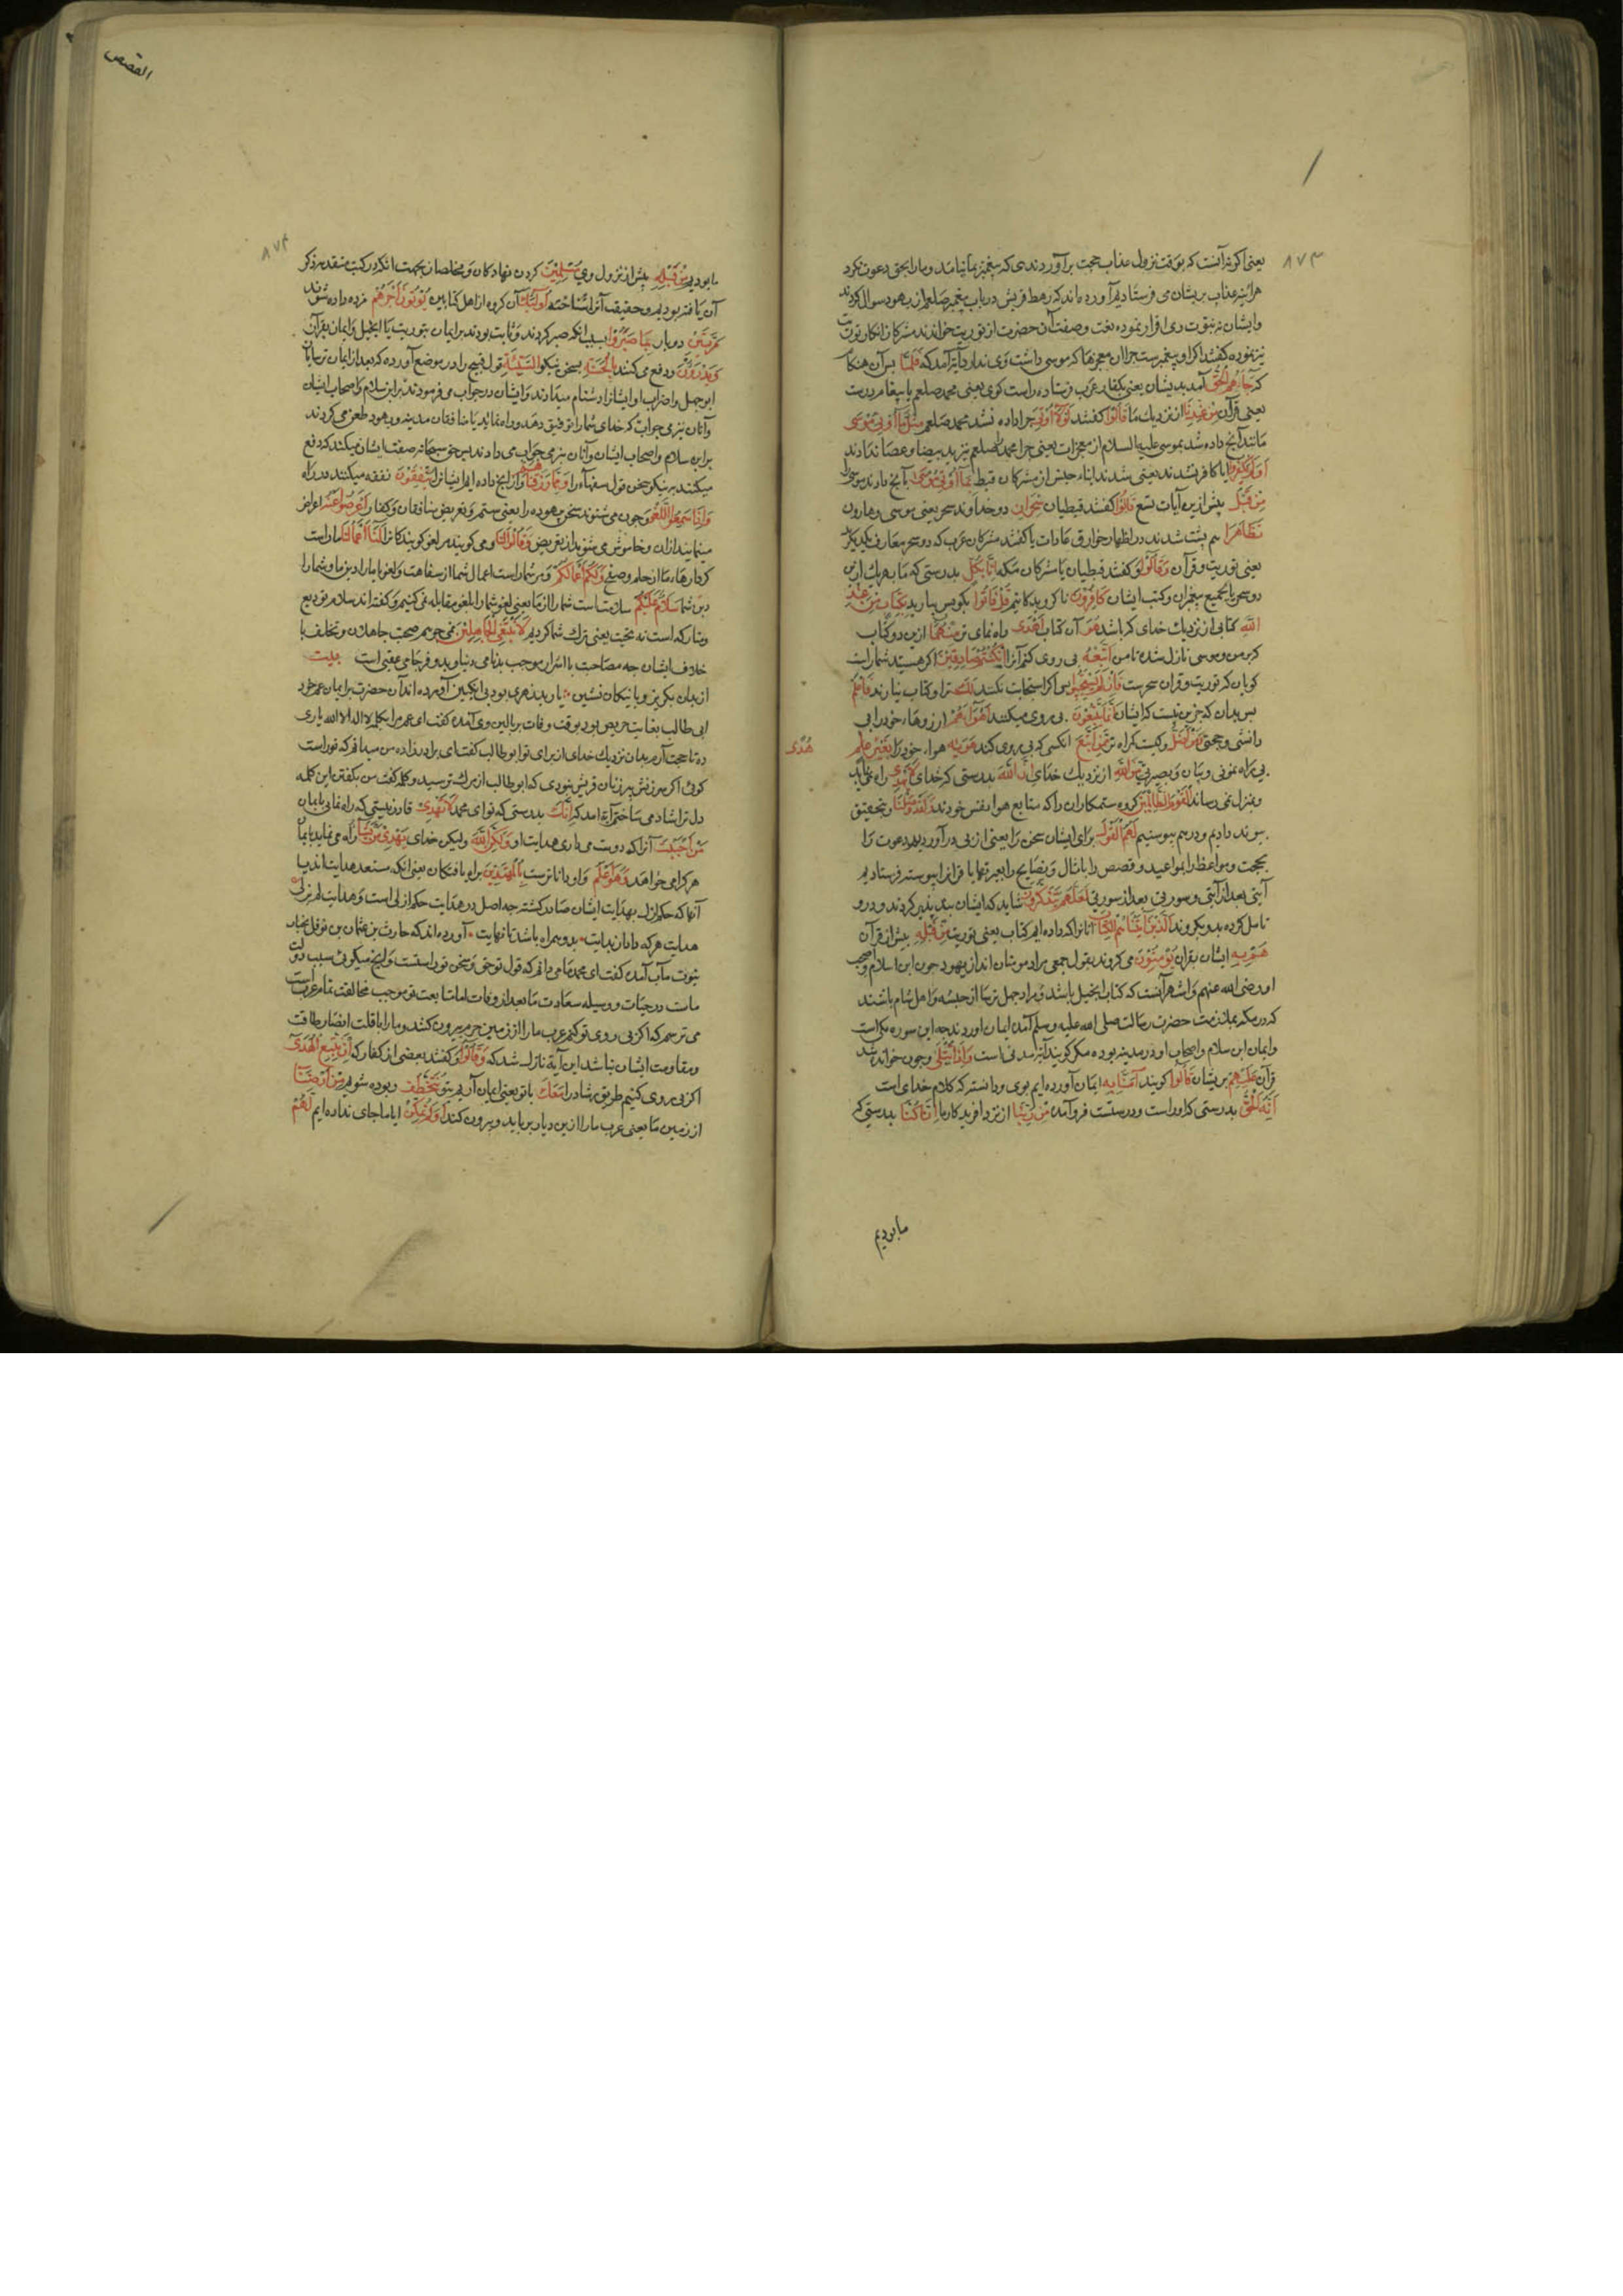 ٨٧٣
یعنی اکر نه آنست که بوقت نزول عذاب حجت برآوردندی که پیغمبر بما نیامد و ما را بحق دعوت نکرد
هر آینه عذاب بریشان می فرستادیم آورده اند که رهط قریش در باب پیغمبر صلعم از یهود سوال کردند
و ایشان نبوت وی اقرار نموده نعت و صفت آن حضرت از توریت خواندند مشرکان انکار توریت
نیز نموده کفتند اکر او پیغمبرست چرا ان معجزها که موسی داشت وی ندارد آیة آمد که فَلَمَّا پس آن هنکام
که جَاءَهُمُ الْحَقُّ آمد بدیشان یعنی بکفار عرب فرستاده راست کوی یعنی محمد صلعم یا پیغام درست
یعنی قرآن مِنْ عِنْدِنَا از نزدیك ما قَالُوا کفتند لَوْلَا أُوتِيَ چرا داده نشد محمد صلعم مِثْلَ مَا أُوتِيَ مُوسَى
مانند آنچ داده شد بموسی علیه السلام از معجزات یعنی چرا محمد صلعم نیز ید بیضا و عصا ندادند
أَوَلَمْ يَكْفُرُوا ایا کافر نشدند یعنی شدند ابناء جنس از مشرکان قبط بِمَا أُوتِيَ مُوسَى بآنچ دادند موسی را
مِنْ قَبْلُ پیش ازین آیات تسع قَالُوا کفتند قبطیان سِحْرَانِ دو خداوند سحر یعنی موسی و هارون
تَظَاهَرَا هم پشت شدند در اظهار خوارق عادات یا کفتند مشرکان عرب که دو سحر معارف یکدیکر
یعنی توریت و قرآن وَقَالُوا و کفتند قبطیان یا مشرکان مکه إِنَّا بِكُلٍّ بدرستی که ما بهریك ازین
دو سحر یا بجمیع پیغمبران و کتب ایشان كَافِرُونَ ناکرویدکانیم قُلْ فَأْتُوا بکو پس بیارید بِكِتَابٍ مِنْ عِنْدِ
اللَّهِ کتابی از نزدیك خدای که باشد هُوَ آن کتاب أَهْدَى راه نمای تر مِنْهُمَا ازین دو کتاب
که بر من و موسی نازل شده تا من أَتَّبِعْهُ پی روی کنم آنرا إِنْ كُنْتُمْ صَادِقِينَ اکر هستید شما راست
کویان که توریت و قران سحرست فَإِنْ لَمْ يَسْتَجِيبُوا پس اکر استجابت نکنند لَكَ ترا و کتاب نیارند فَاعْلَمْ
پس بدان که جزین نیست که ایشان أَنَّمَا يَتَّبِعُونَ پی روی میکنند أَهْوَاءَهُمْ ارزوهاء خود را بی
دانشی و حجتی وَمَنْ أَضَلُّ و کیست کمراه تر مِمَّنِ اتَّبَعَ انکسی که پی روی کند هَوَاهُ هواء خود را بِغَيْرِ
هُدًى
بی راه نمونی و بیان و بصیرتی مِنَ اللَّهِ از نزدیك خدای إِنَّ اللَّهَ بدرستی که خدای لَا يَهْدِي راه نماید
و بمنزل نمی رساند الْقَوْمَ الظَّالِمِينَ کروه ستمکاران را که متابع هواء نفس خودند وَلَقَدْ وَصَّلْنَا و بتحقیق
پیوند دادیم و درهم پیوستیم لَهُمُ الْقَوْلَ برای ایشان سخن را یعنی از پی درآوردیم دعوت را
بحجت و مواعظ را بمواعید و قصص را بامثال و نصایح را بعبرتها یا قرانرا پیوسته فرستادیم
آیتی بعد از آیتی و سورتی بعد از سورتی لَعَلَّهُمْ يَتَذَكَّرُونَ شاید که ایشان پند پذیر کردند و درو
تامل کرده بدو بکروند الَّذِينَ آتَيْنَاهُمُ الْكِتَابَ آنانرا که داده ایم کتاب یعنی توریت مِنْ قَبْلِهِ پیش از قرآن
هُمْ بِهِ ایشان بقران يُؤْمِنُونَ می کروند بقول جمعی مراد مومنان اند از یهود چون ابن اسلام و اصحاب
او رضی الله عنهم و اشهر آنست که کتاب انجیل باشد و مراد چهل ترسا از حبشه و اهل شام باشند
که در مکه بملازمت حضرت رسالت صلی الله علیه وسلم آمده ایمان اوردند چه این سوره مکی است
و ایمان ابن سلام و اصحاب او در مدینه بوده مکر کویند آیة مدنی است وَإِذَا يُتْلَى و چون خوانده شد
قرآن عَلَيْهِمْ بریشان قَالُوا کویند آمَنَّا بِهِ ایمان آورده ایم بوی و دانسته که کلام خدای است
إِنَّهُ الْحَقُّ بدرستی که او راست و درستست فرو آمده مِنْ رَبِّنَا از نزد افریدکار ما إِنَّا كُنَّا بدرستی که
ما بودیم
القصص
٨٧٤
ما بودیم مِنْ قَبْلِهِ پیش از نزول وی مُسْلِمِينَ کردن نهادکان و مخلصان بجهت انکه در کتب متقدمه ذکر
آن یافته بودیم و حقیقت آنرا شناخته أُولَئِكَ آن کروه از اهل کتابین يُؤْتَوْنَ أَجْرَهُمْ مزد داده شوند
مَرَّتَيْنِ دو بار بِمَا صَبَرُوا بسبب انکه صبر کردند و ثابت بودند بر ایمان بتوریت یا انجیل و ایمان بقرآن
وَيَدْرَءُونَ و دفع می کنند بِالْحَسَنَةِ بسخن نیکو السَّيِّئَةَ قول قبیح را در موضع آورده که بعد از ایمان ترسایان
ابوجهل و اضراب او ایشانرا دشنام میدادند و ایشان در جواب می فرمودند برابن سلام و اصحاب ایشان
و آنان نیز می جواب که خدای شما را توفیق دهد و راه نماید یا منافقان مدینه و یهود طعن می کردند
بر ابن سلام و اصحاب ایشان و آنان نیز می جواب می دادند پس حق سبحانه صفت ایشان میکند که دفع
میکنند به نیکو سخن قول سفها را وَمِمَّا رَزَقْنَاهُمْ و از انچ داده ایم ایشانرا يُنْفِقُونَ نفقه میکنند در راه
وَإِذَا سَمِعُوا اللَّغْوَ و چون می شنوند سخن بیهوده را یعنی ستم و تعریض منافقان و کفار أَعْرَضُوا عَنْهُ اعراض
مینمایند ازان و خاموش می شوند از تعریض وَقَالُوا لَنَا و می کویند مر لغو کویندکانرا أَعْمَالُنَا ما راست
کردارهاء ما از حلم و صفح وَلَكُمْ أَعْمَالُكُمْ و مر شما راست اعمال شما از سفاهت و لغو یا ما را دین ما و شما را
دین شما سَلَامٌ عَلَيْكُمْ سلامت است شما را از ما یعنی لغو شما را بلغو مقابله نمی کنیم و کفته اند سلام تودیع
و متارکه است نه تحیت یعنی ترك شما کردیم لَا نَبْتَغِي الْجَاهِلِينَ نمی جوییم صحبت جاهلان و تخالف با
خلاف ایشان چه مصاحبت با اشرار موجب بدنامی دنیا و بدفرجامی عقبی است بیت
از بدان بکریز و با نیکان نشین یار بد زهری بود بی انکبین آورده اند آن حضرت بر ایمان عم خود
ابی طالب بغایت حریص بود بوقت وفات ببالین وی آمده کفت ای عم مرا بکلمه لا اله الا الله یاری
ده تا حجت آرم بدان نزدیك خدای از برای تو ابوطالب کفت ای برادرزاده من میدانم که تو راست
کوئی اکر سرزنش پیرزنان قریش نبودی که ابوطالب از مرك ترسید و کلمه کفت من بکفتن این کلمه
دل ترا شاد می ساختم آیة امد که إِنَّكَ بدرستی که تو ای محمد لَا تَهْدِي قادر نیستی که راه نمائی بایمان
مَنْ أَحْبَبْتَ آنرا که دوست می داری هدایت او وَلَكِنَّ اللَّهَ و لیکن خدای يَهْدِي مَنْ يَشَاءُ راه می نماید بایمان
هر کرا می خواهد وَهُوَ أَعْلَمُ و او داناترست بِالْمُهْتَدِينَ براه یافتکان یعنی انکه مستعد هدایت اند یا
آنها که حکم ازل بهدایت ایشان صادر کشته چه اصل در هدایت حکم ازلی است و هدایت لم یزلی
هدایت هر که داد از بدایت بدو همراه باشد تا نهایت آورده اند که حارث بن عثمان بن نوفل بجناب
نبوت مآب آمده کفت ای محمد ما می دانیم که قول تو حق و سخن تو راستست و انچ میکوئی سبب دولت
ماست در حیات و وسیله سعادت ما بعد از وفات اما متابعت تو موجب مخالفت تمام عرب است
می ترسم که اکر پی روی تو کنم عرب ما را از زمین حرم بیرون کنند و ما را با قلت انصار طاقت
و مقاومت ایشان نباشد این آیة نازل شد که وَقَالُوا و کفتند بعضی از کفار که إِنْ نَتَّبِعِ الْهُدَى
اکر پی روی کنیم طریق رشاد را مَعَكَ با تو یعنی ایمان آریم بتو نُتَخَطَّفْ ربوده شویم مِنْ أَرْضِنَا
از زمین ما یعنی عرب ما را ازین دیار برباید و بیرون کند أَوَلَمْ نُمَكِّنْ ایا ما جای نداده ایم لَهُمْ